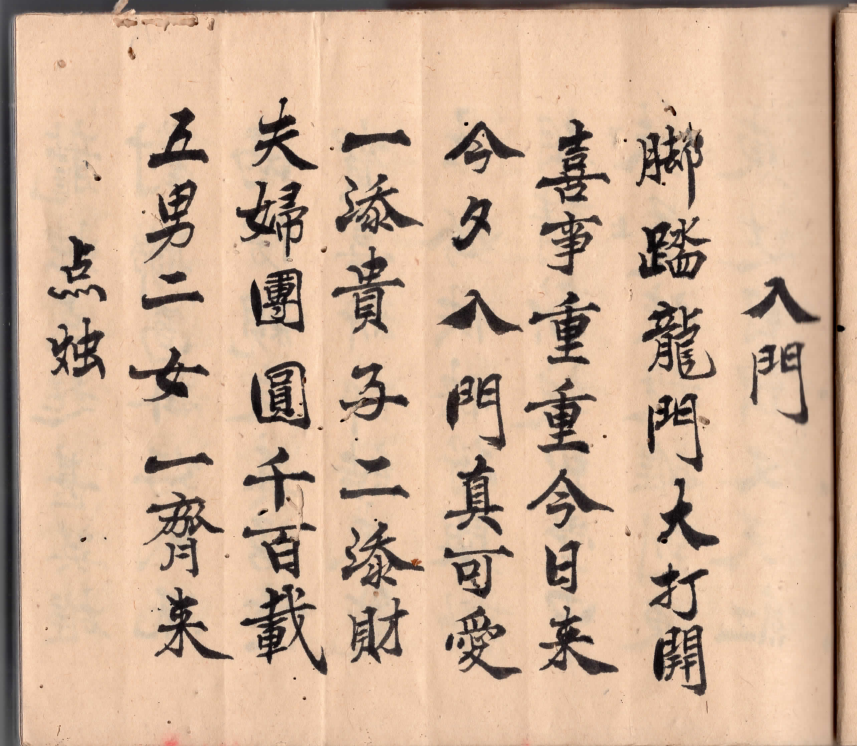 入門
脚踏龍門大打開
喜事重重今日来
今夕入門真可愛
一添貴子二添財
夫婦團圓千百載
五男二女一齊来
点烛